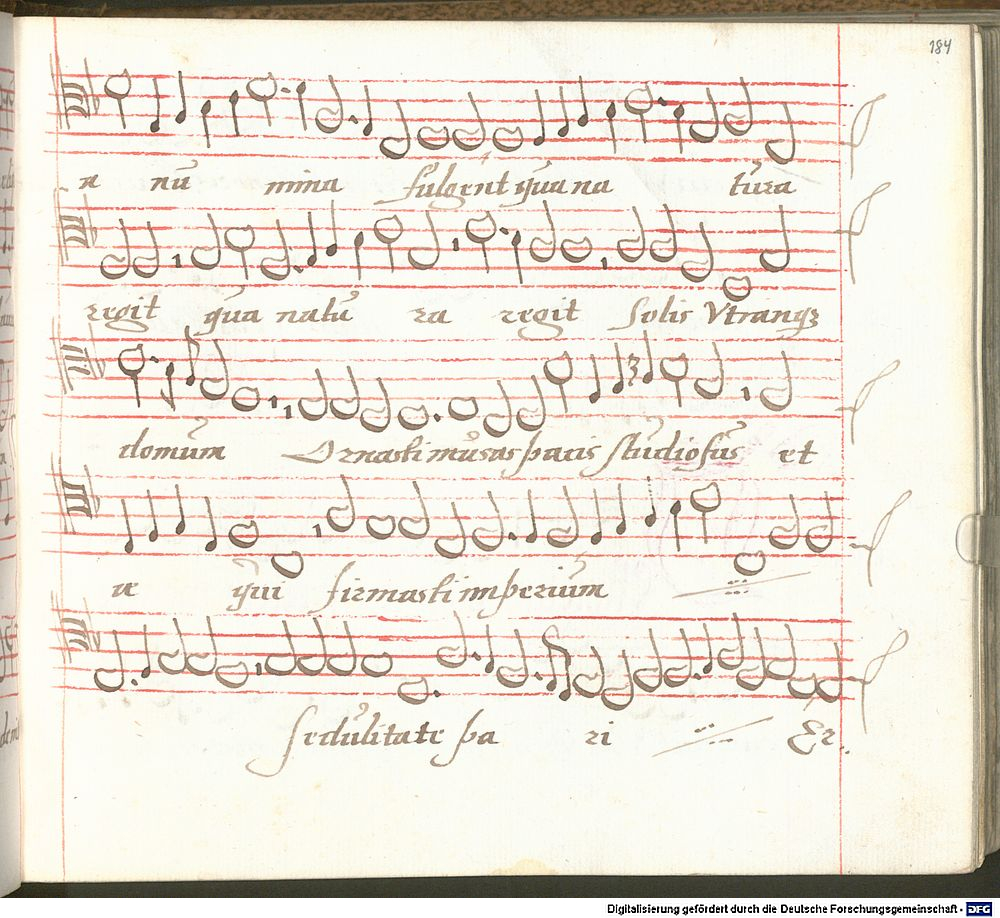 184
a nũ mina fulgent qua na tura
regit qua natu ra regit Solis Vtranqȝ
domum Ornasti musas pacis studiosus et
a qui firmasti imperium
sedulitate pa ri Er..
Digitalisierung gefördert durch die Deutsche Forschungsgemeinschaft - DFG